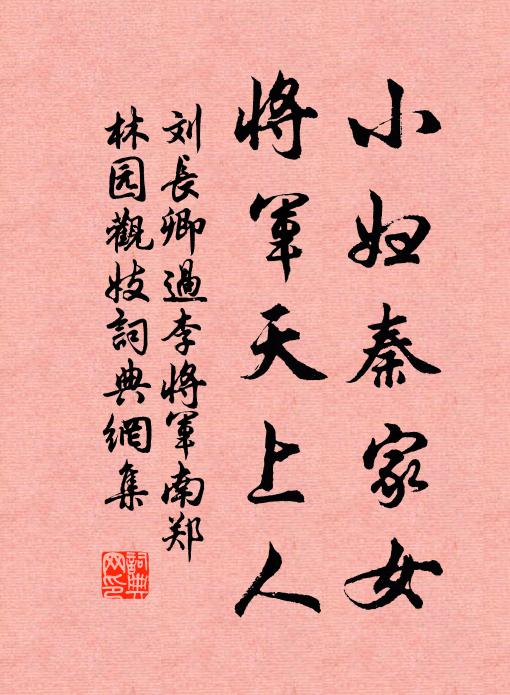 小妇秦家女
将军天上人
刘長卿過李将军南郑
林园觀妓詞典網集
詞典
网印